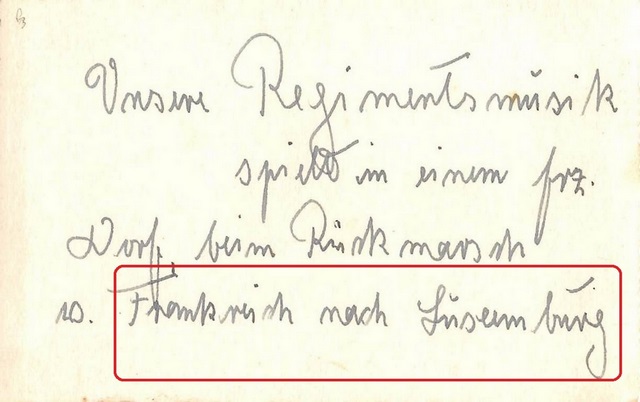 Unsere Regimentsmusik
spielt in einem frz.
Dorf, beim Rückmarsch
v. Frankreich nach Luxemburg